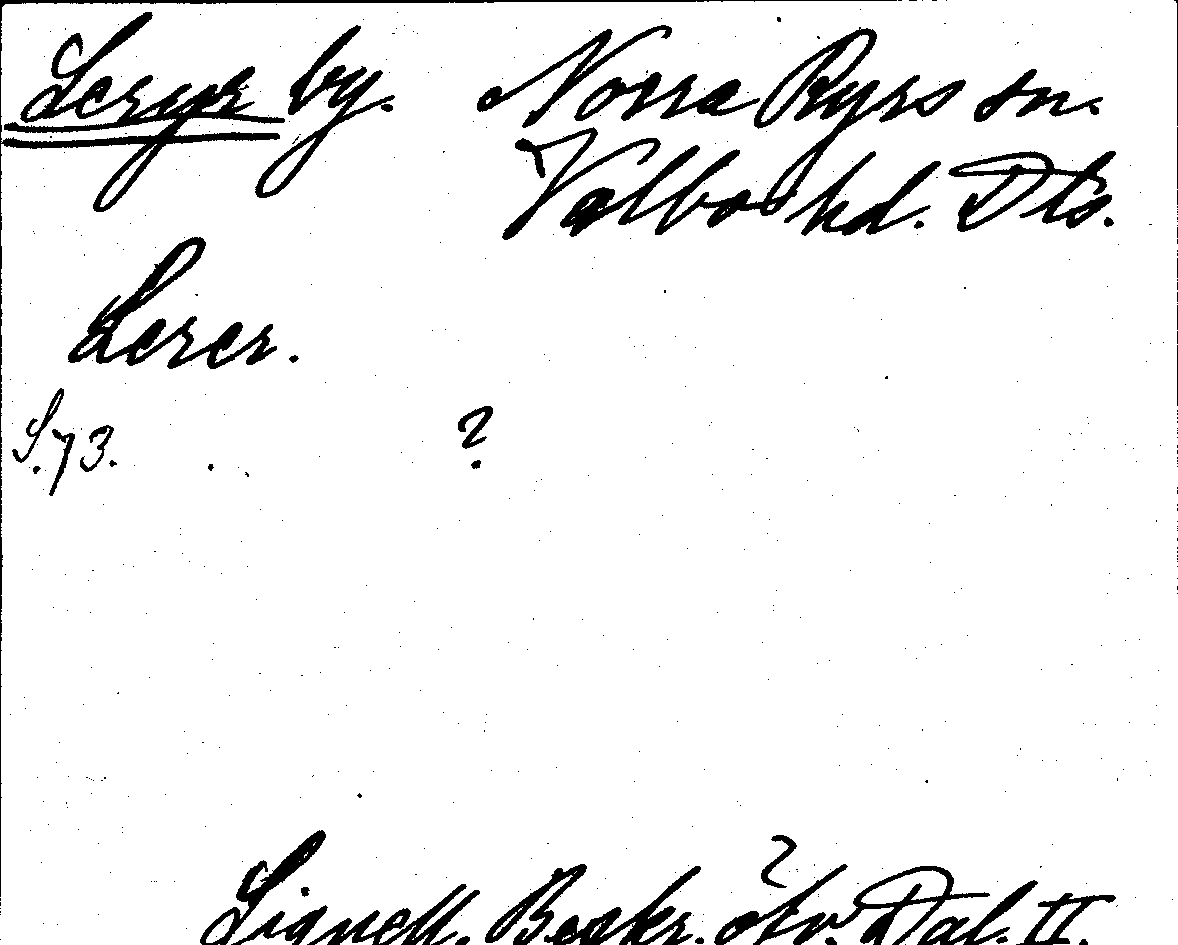 Leryr by. Norra Ryrs sn.
Valbo hd. Dls.
Lerer.
S. 73. ?
Lignell. Beskr. öfv. Dal. II.